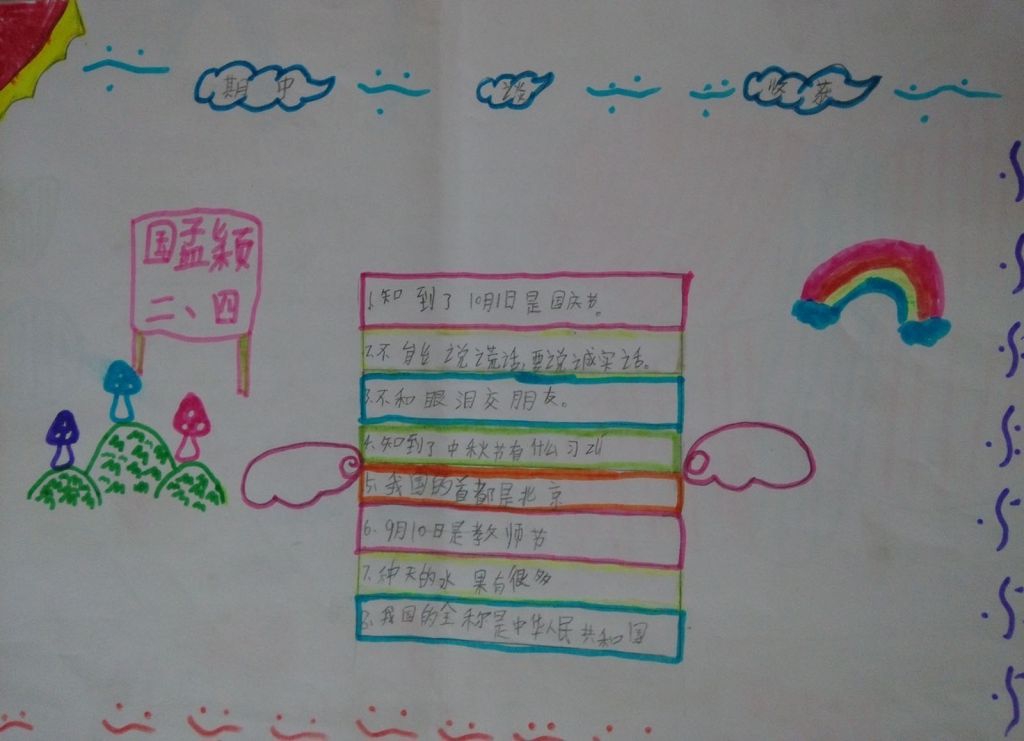 期中
总
收获
国孟颖
二、四
1.知到了10月1日是国庆节。
2.不能说谎话,要说诚实话。
3.不和眼泪交朋友。
4.知到了中秋节有什么习
5.我国的首都是北京
6.9月10日是教师节
7.秋天的水果有很多
8.我国的全称是中华人民共和国